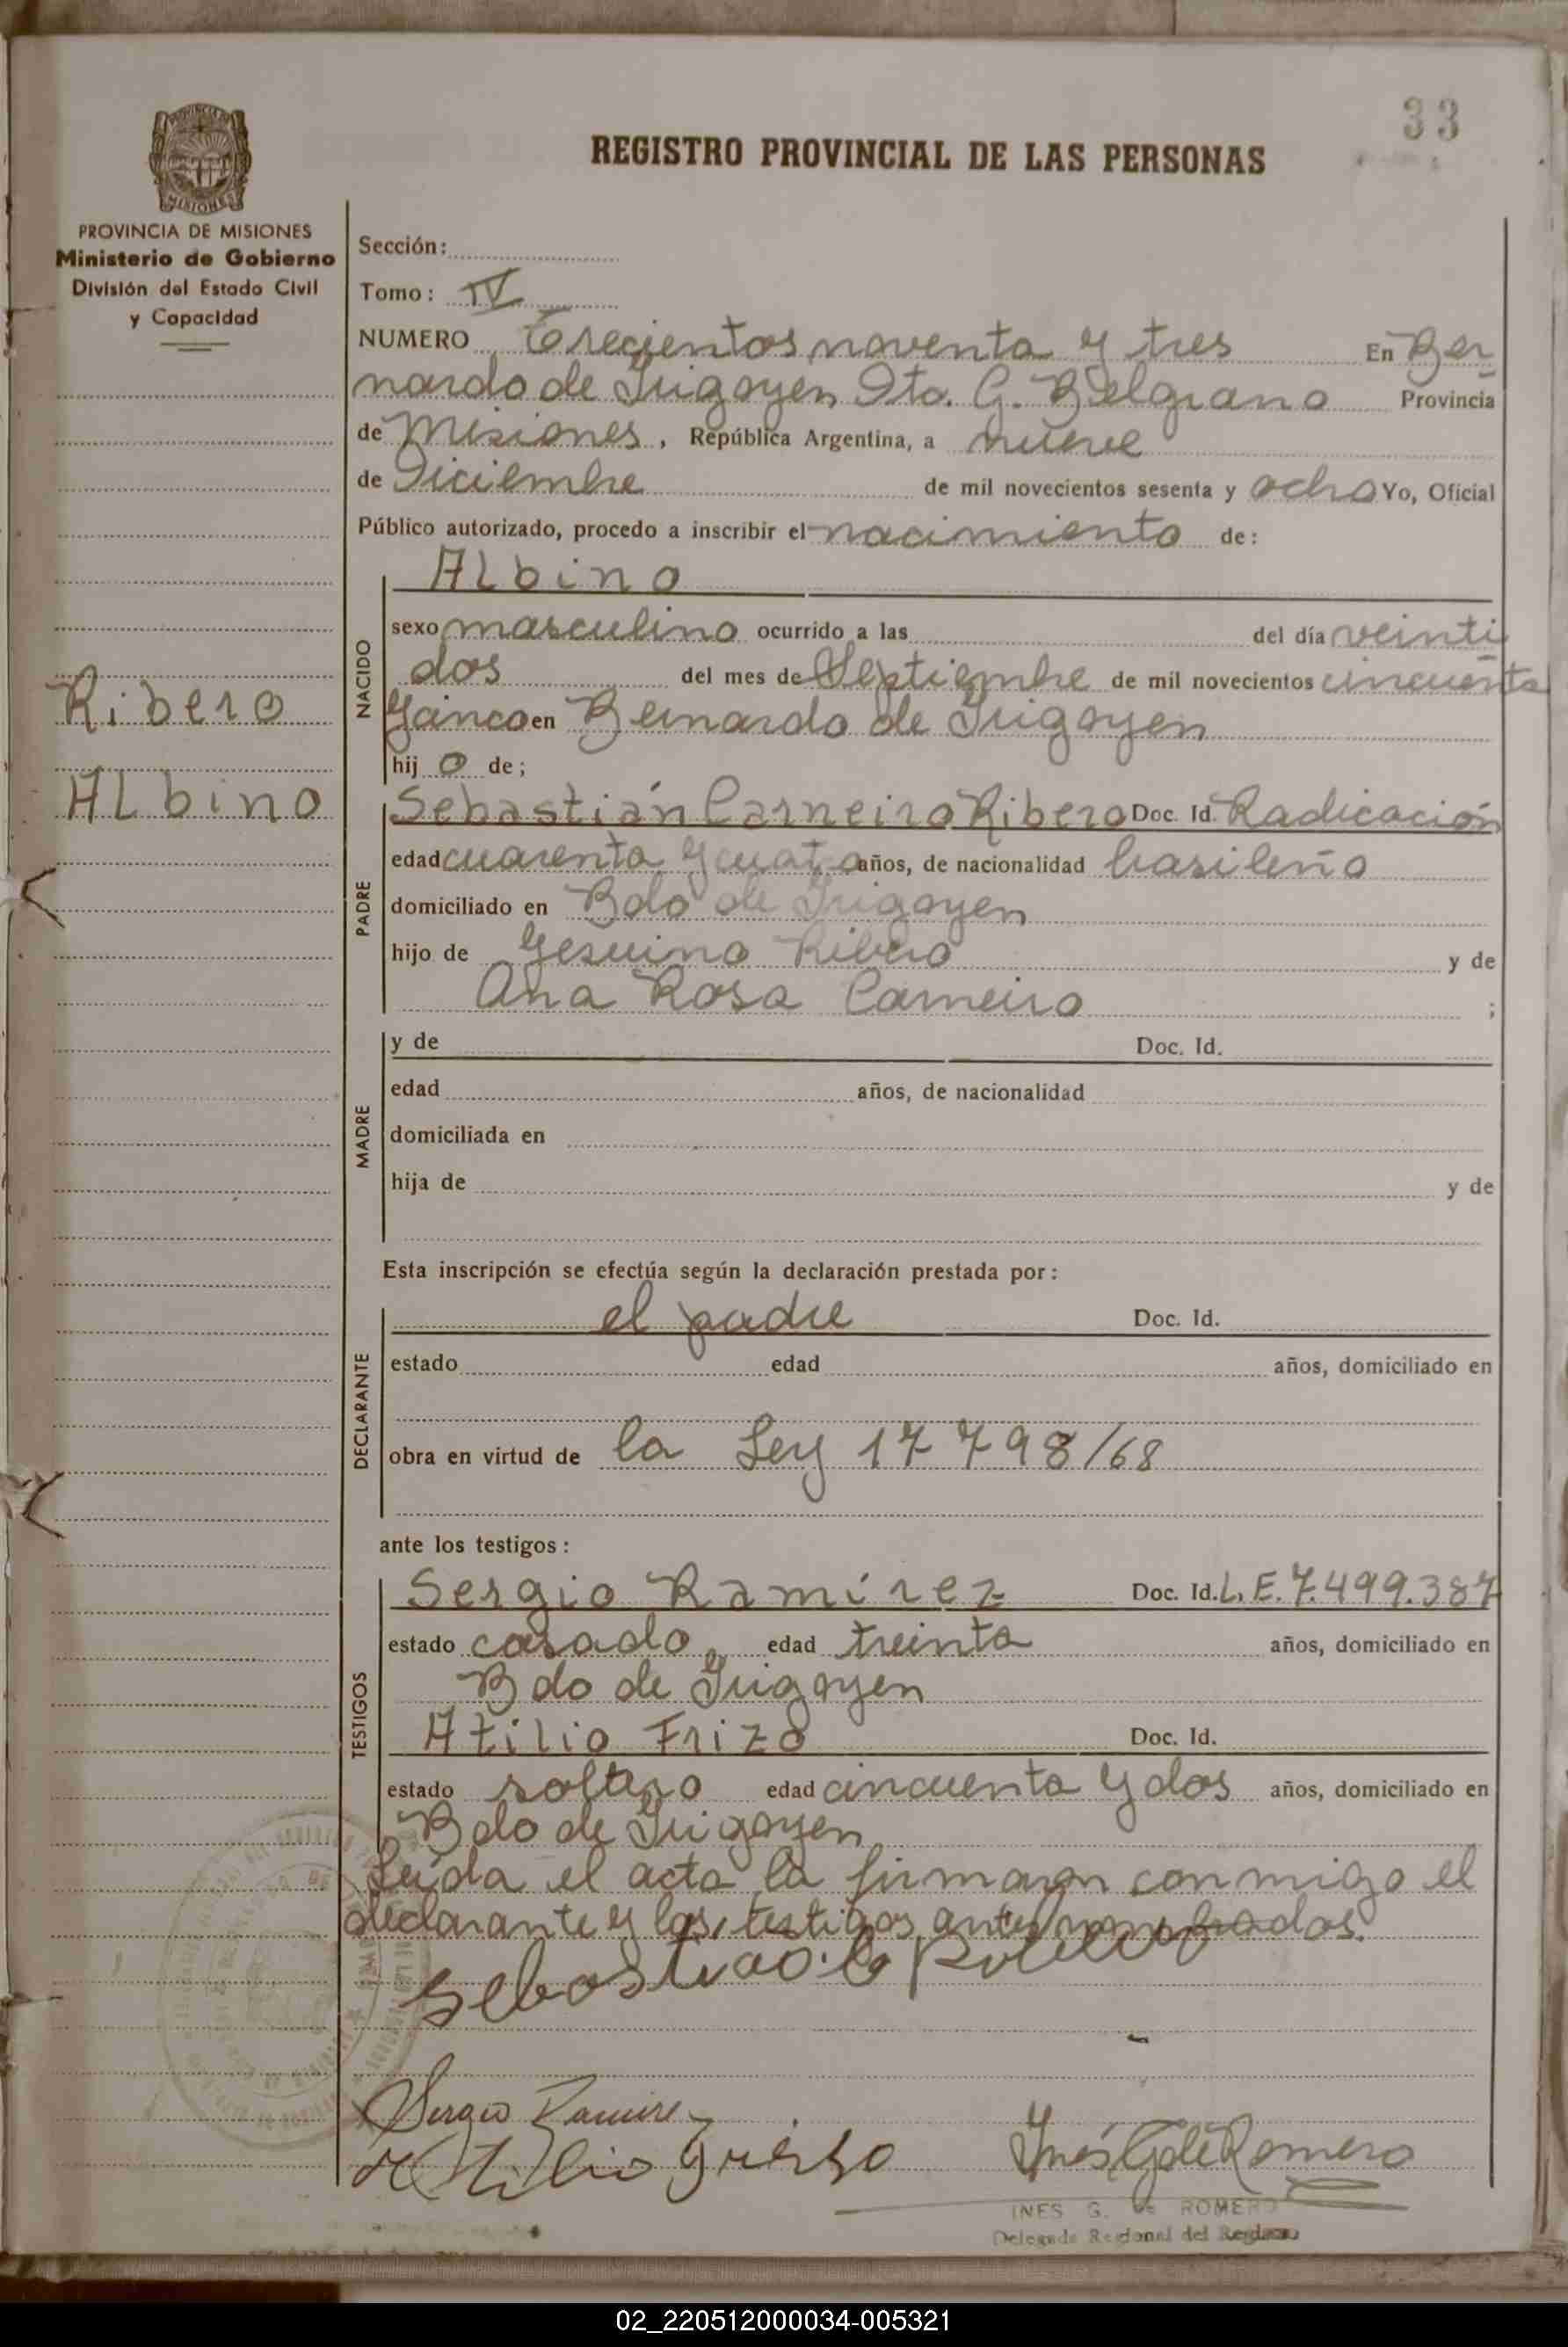 33
REGISTRO PROVINCIAL DE LAS PERSONAS
PROVINCIA DE MISIONES
Ministerio de Gobierno
División del Estado Civil
y Capacidad
Sección:
Tomo: IV
NUMERO Trecientos noventa y tres En Ber
nardo de Irigoyen Dto. G. Belgrano Provincia
de Misiones, República Argentina, a nueve
de Diciembre de mil novecientos sesenta y ocho Yo, Oficial
Público autorizado, procedo a inscribir el nacimiento de:
Ribero
Albino
NACIDO
Albino
sexo masculino ocurrido a las del día veinti
dos del mes de Septiembre de mil novecientos cincuenta
y cinco en Bernardo de Irigoyen
hijo de;
PADRE
Sebastián Carneiro Ribero Doc. Id. Radicación
edad cuarenta y cuatro años, de nacionalidad brasileña
domiciliado en Bdo de Irigoyen
hijo de Gesuino Ribero y de
Ana Rosa Carneiro ;
MADRE
y de Doc. Id.
edad años, de nacionalidad
domiciliada en
hija de y de
Esta inscripción se efectúa según la declaración prestada por:
DECLARANTE
el padre Doc. Id.
estado edad años, domiciliado en
obra en virtud de la Ley 17798/68
ante los testigos:
TESTIGOS
Sergio Ramírez Doc. Id. L.E. 7.499.387
estado casado edad treinta años, domiciliado en
Bdo de Irigoyen
Atilio Frizo Doc. Id.
estado soltero edad cincuenta y dos años, domiciliado en
Bdo de Irigoyen
Leída el acta la firmaron conmigo el
declarante y los testigos antes nombrados.
Sergio Ramirez
Atilio Frizo
Inés G de Romero
INES G. de ROMERO
Delegada Regional del Registro
02_220512000034-005321